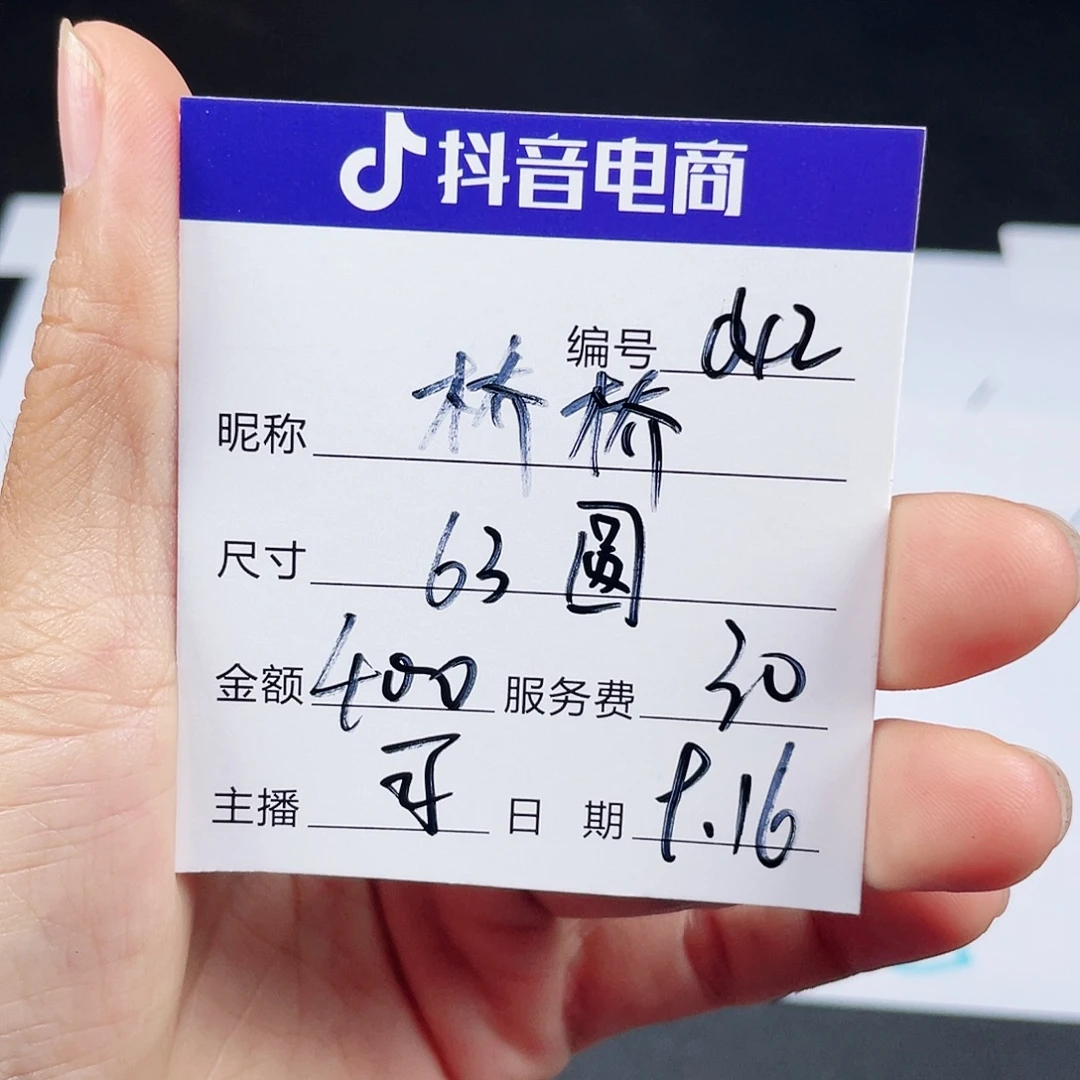 抖音电商
编号 042
昵称 桥桥
尺寸 63圆
金额 400 服务费 30
主播 日期 9.16